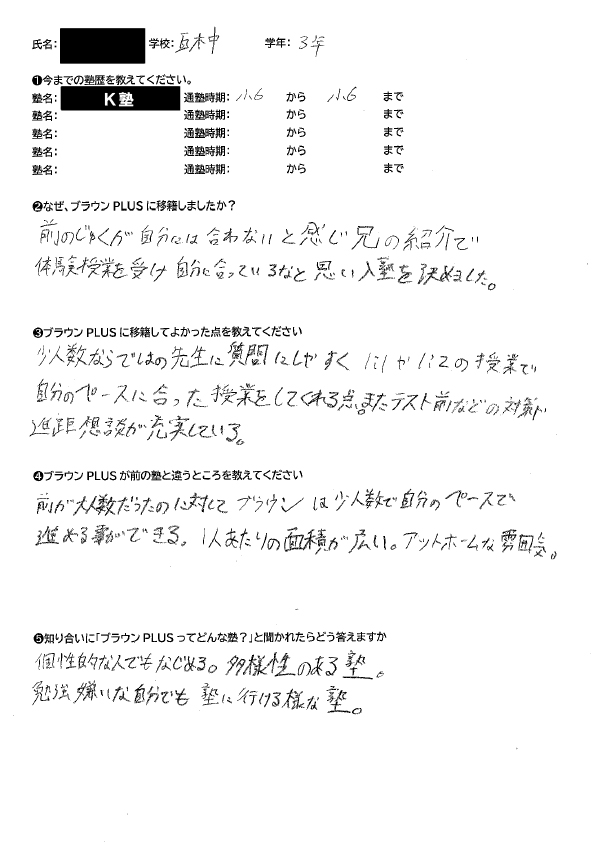 氏名: 学校: 互木中 学年: 3年
❶今までの塾歴を教えてください。
塾名: K塾 通塾時期: 小6 から 小6 まで
塾名: 通塾時期: から まで
塾名: 通塾時期: から まで
塾名: 通塾時期: から まで
塾名: 通塾時期: から まで
❷なぜ、ブラウンPLUSに移籍しましたか？
前のじゅくが自分には合わないと感じ兄の紹介で
体験授業を受け自分に合っているなと思い入塾を決めました。
❸ブラウンPLUSに移籍してよかった点を教えてください
少人数ならではの先生に質問にしやすく 1:1か1:2の授業で
自分のペースに合った授業をしてくれる点。またテスト前などの対策や
進路想談が充実している。
❹ブラウンPLUSが前の塾と違うところを教えてください
前が大人数だったのに対して ブラウンは少人数で自分のペースで
進める事ができる。1人あたりの面積が広い。アットホームな雰囲気。
❺知り合いに「ブラウンPLUSってどんな塾？」と聞かれたらどう答えますか
個性的な人でもなじめる。多様性のある塾。
勉強嫌いな自分でも塾に行ける様な塾。